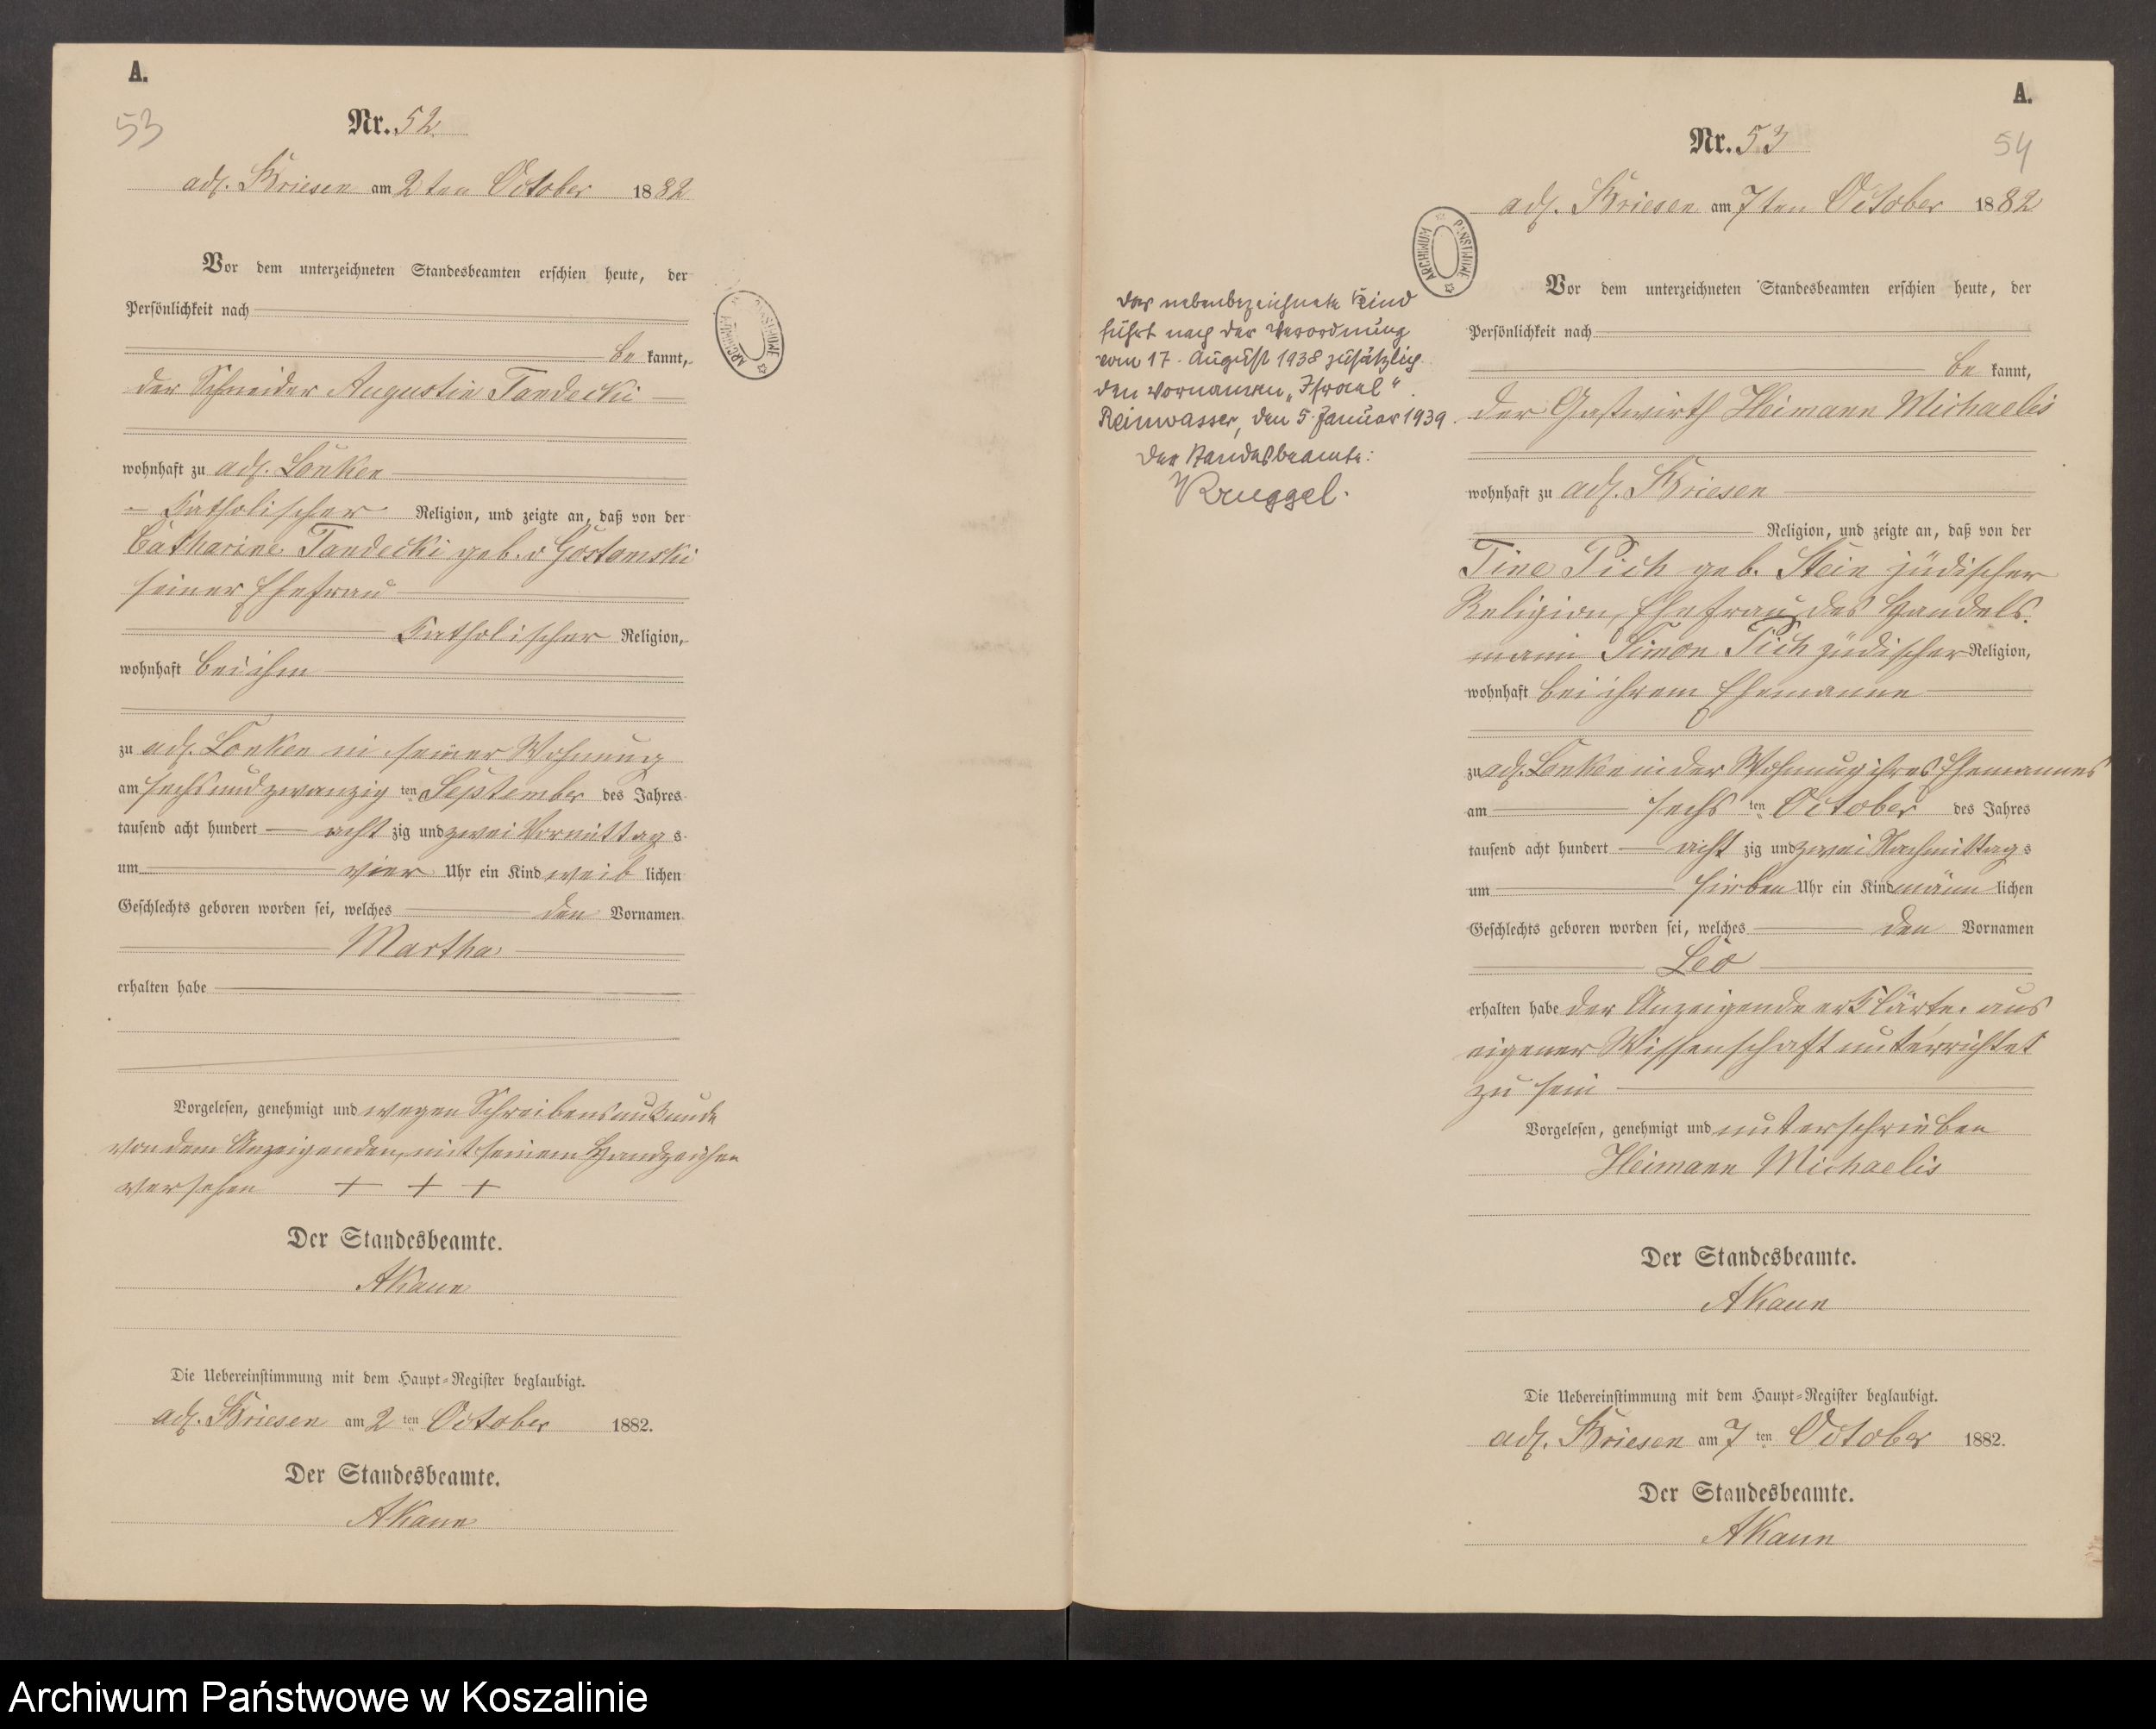 A.
53
Nr. 52
adl. Briesen am 2ten October 1882
Vor dem unterzeichneten Standesbeamten erschien heute, der
Persönlichkeit nach
be kannt,
der Schneider Augustin Tandecki
wohnhaft zu adl. Lonken
Katholischer Religion, und zeigte an, daß von der
Catharine Tandecki geb. v Gostomski
seiner Ehefrau
Katholischer Religion,
wohnhaft bei ihm
zu adl. Lonken in seiner Wohnung
am sechs und zwanzig ten September des Jahres
tausend acht hundert acht zig und zwei Vormittag s
um vier Uhr ein Kind weib lichen
Geschlechts geboren worden sei, welches den Vornamen
Martha
erhalten habe
Vorgelesen, genehmigt und wegen Schreibensunkunde
von dem Anzeigenden, mit seinem Handzeichen
versehen + + +
Der Standesbeamte.
AKaun
Die Uebereinstimmung mit dem Haupt-Register beglaubigt.
adl. Briesen am 2 ten October 1882.
Der Standesbeamte.
AKaun
ARCHIWUM PAŃSTWOWE
A.
54
Nr. 53
adl. Briesen am 7ten October 1882
ARCHIWUM PAŃSTWOWE
Das nebenbezeichnete Kind
führt nach der Verordnung
vom 17. August 1938 zusätzlich
den Vornamen „Israel“.
Reinwasser, den 5. Januar 1939.
Der Standesbeamte:
Kruggel.
Vor dem unterzeichneten Standesbeamten erschien heute, der
Persönlichkeit nach
be kannt,
der Gastwirth Heimann Michaelis
wohnhaft zu adl. Briesen
Religion, und zeigte an, daß von der
Tine Pich geb. Stein jüdischer
Religion, Ehefrau des Handels-
mann Simon Pich jüdischer Religion,
wohnhaft bei ihrem Ehemanne
zu adl. Lonken in der Wohnung ihres Ehemannes
am sechs ten October des Jahres
tausend acht hundert acht zig und zwei Nachmittag s
um sieben Uhr ein Kind männ lichen
Geschlechts geboren worden sei, welches den Vornamen
Leo
erhalten habe der Anzeigende erklärte, aus
eigener Wissenschaft unterrichtet
zu sein
Vorgelesen, genehmigt und unterschrieben
Heimann Michaelis
Der Standesbeamte.
AKaun
Die Uebereinstimmung mit dem Haupt-Register beglaubigt.
adl. Briesen am 7 ten October 1882.
Der Standesbeamte.
AKaun
Archiwum Państwowe w Koszalinie